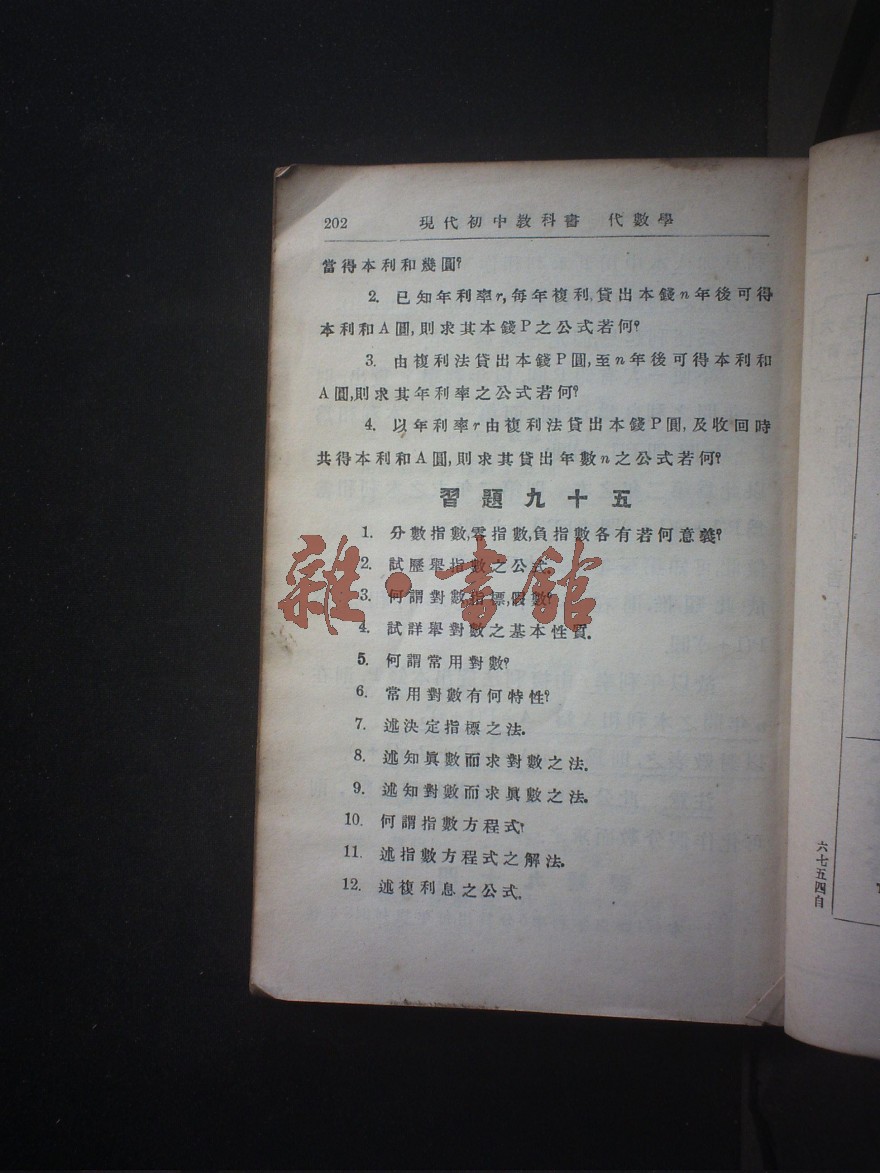 202 現代初中教科書 代數學
當得本利和幾圓?
2. 已知年利率r,每年複利,貸出本錢n年後可得
本利和A圓,則求其本錢P之公式若何?
3. 由複利法貸出本錢P圓,至n年後可得本利和
A圓,則求其年利率之公式若何?
4. 以年利率r由複利法貸出本錢P圓,及收回時
共得本利和A圓,則求其貸出年數n之公式若何?
習題九十五
1. 分數指數,零指數,負指數各有若何意義?
2. 試歷舉指數之公式.
3. 何謂對數,指標,假數?
4. 試詳舉對數之基本性質.
5. 何謂常用對數?
6. 常用對數有何特性?
7. 述決定指標之法.
8. 述知眞數而求對數之法.
9. 述知對數而求眞數之法.
10. 何謂指數方程式?
11. 述指數方程式之解法.
12. 述複利息之公式.
雜·書館
六七五四自